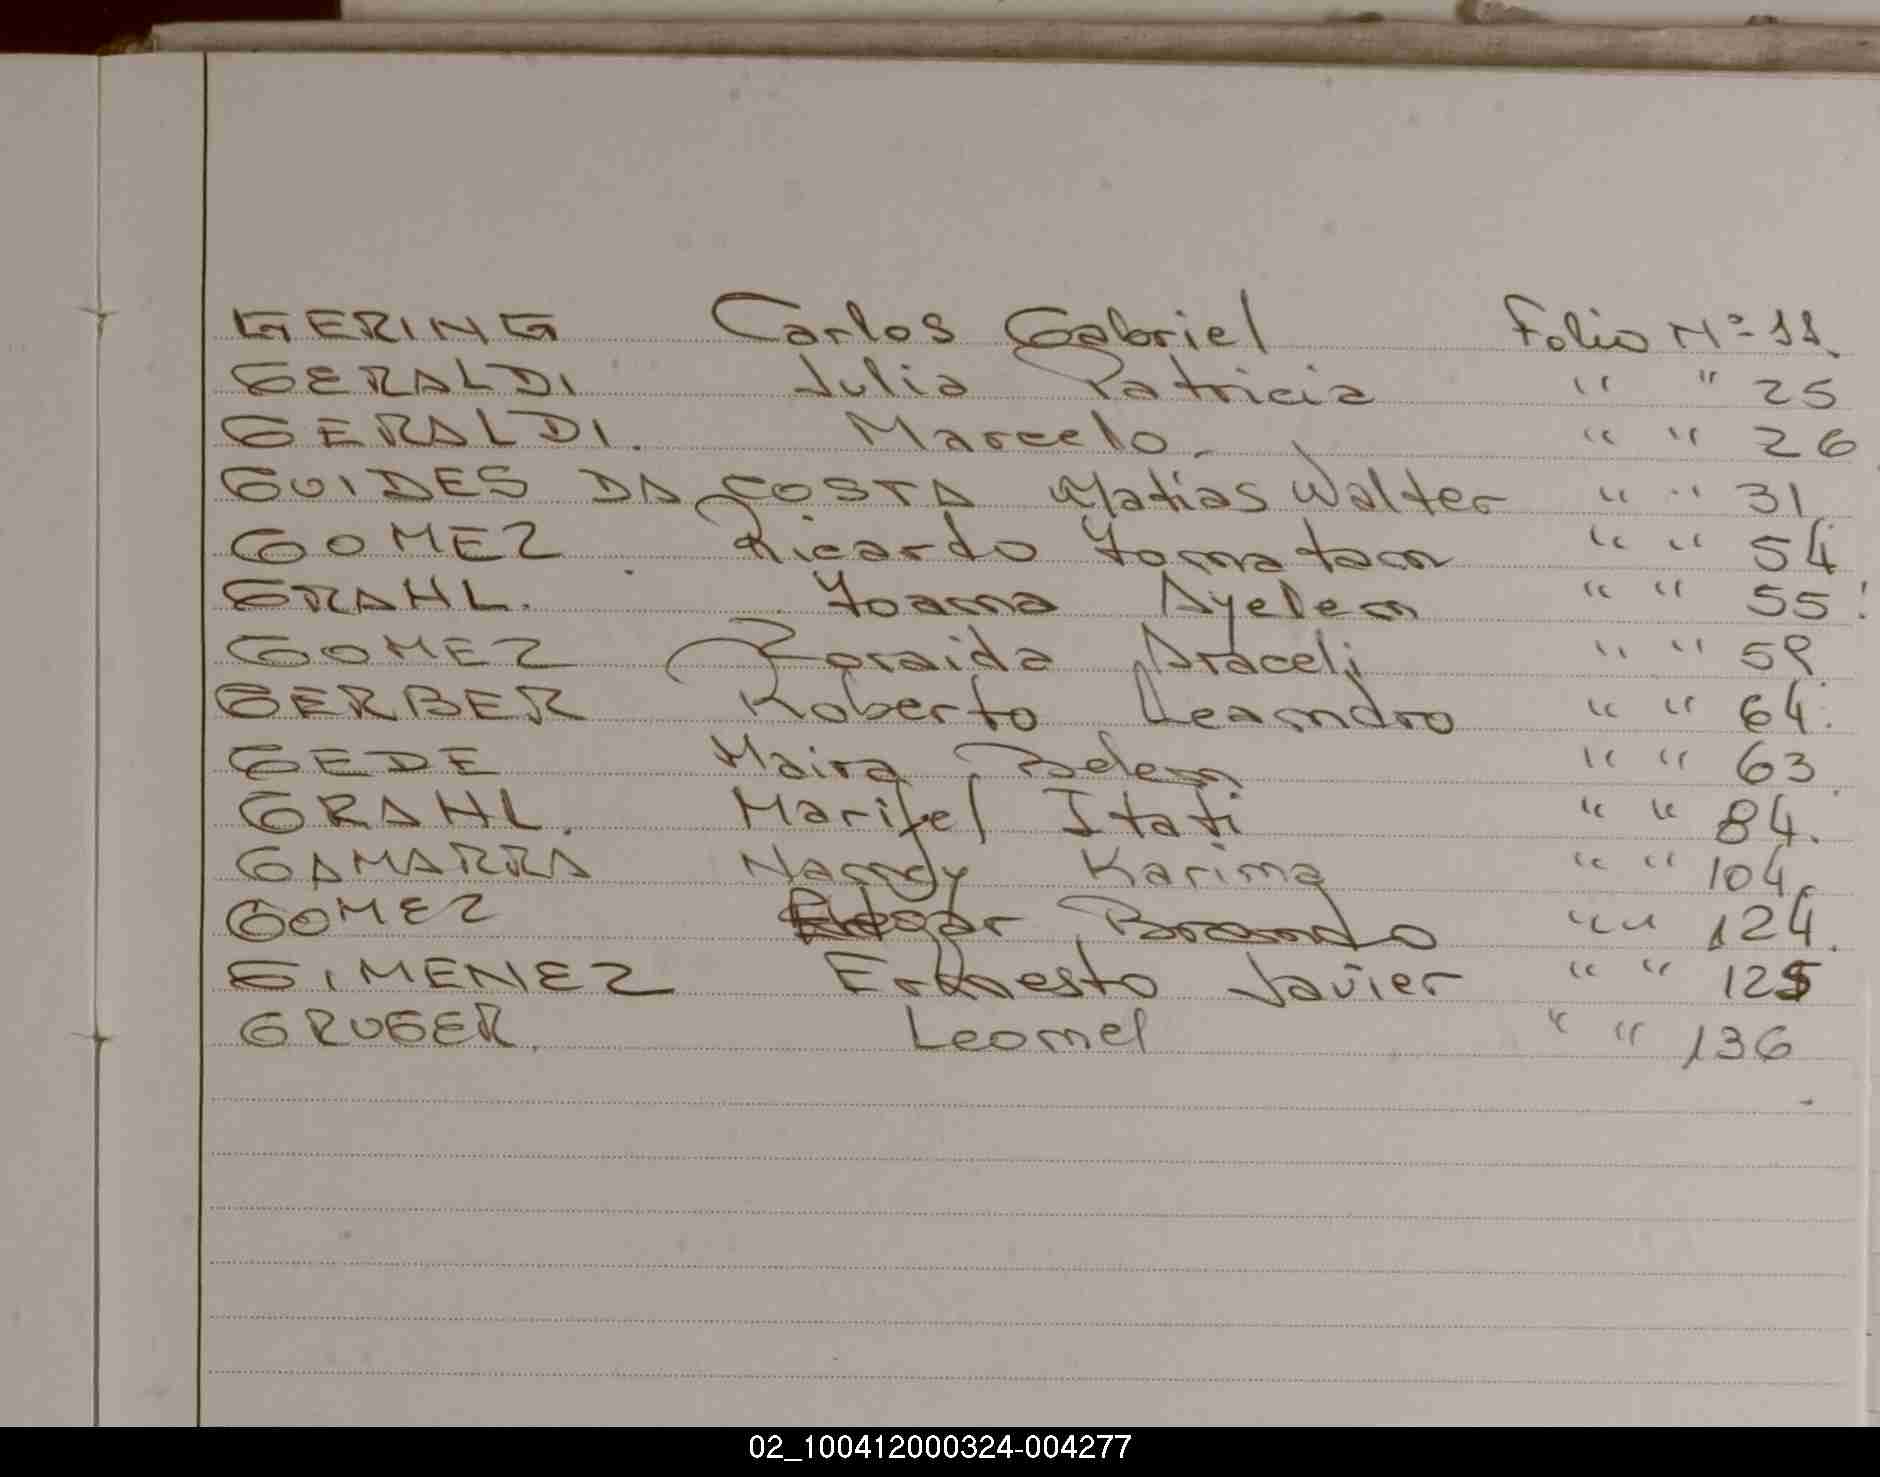 GERING Carlos Gabriel Folio Nº 11.
GERALDI Julia Patricia " " 25
GERALDI. Marcelo " " 26
GUIDES DA COSTA Matias Walter " " 31
GOMEZ Ricardo Yonatan " " 54
GRAHL. Yoana Ayelen " " 55
GOMEZ Zoraida Araceli " " 59
GERBER Roberto Leandro " " 64
GEDE Maira Belen " " 63
GRAHL. Marifel Itati " " 84.
GAMARRA Nancy Karina " " 104
GOMEZ Brando " " 124.
GIMENEZ Ernesto Javier " " 125
GRUGER. Leonel " " 136
02_100412000324-004277